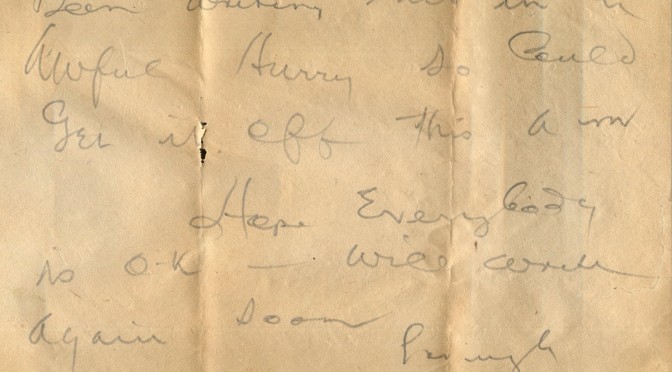 Been writing this in a
Awful Hurry so Could
Get it off this a m
Hope Everybody
is O-K — will write
Again soon